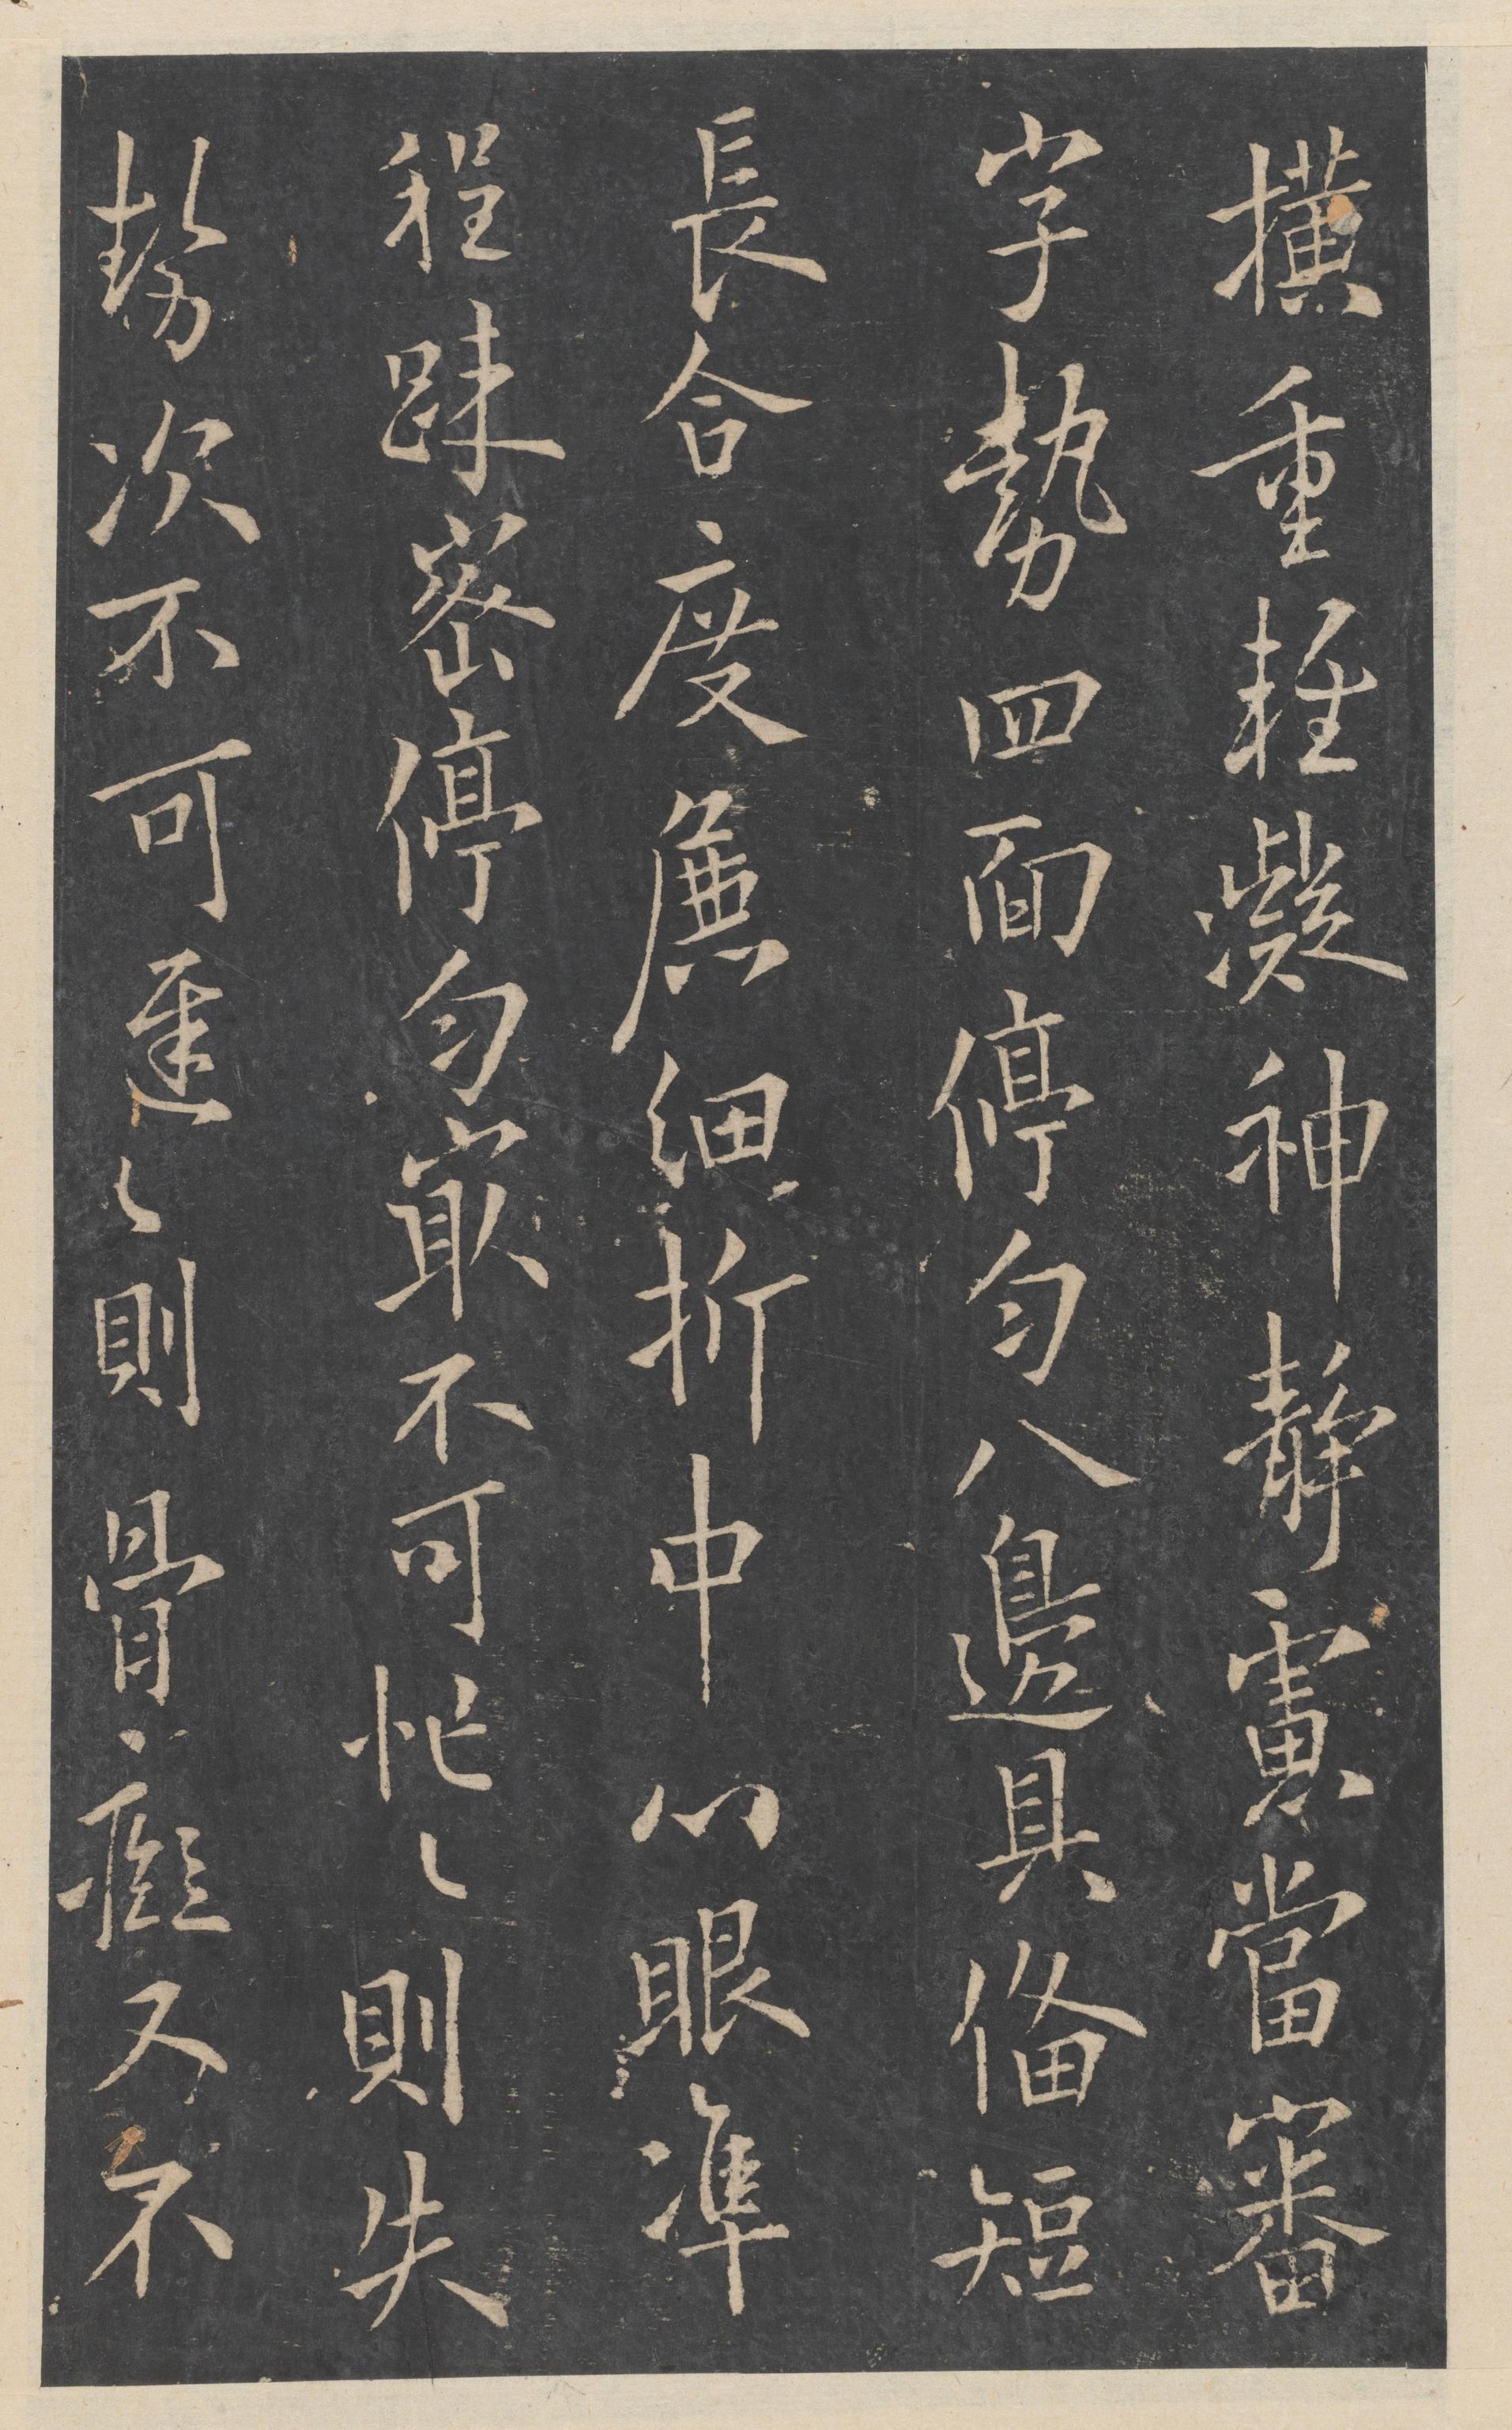 橫重輕凝神靜慮當審
字勢四面停勻八邊具備短
長合度麁細折中心眼准
程踈密停勻冣不可忙〻則失
勢次不可遲〻則骨癡又不